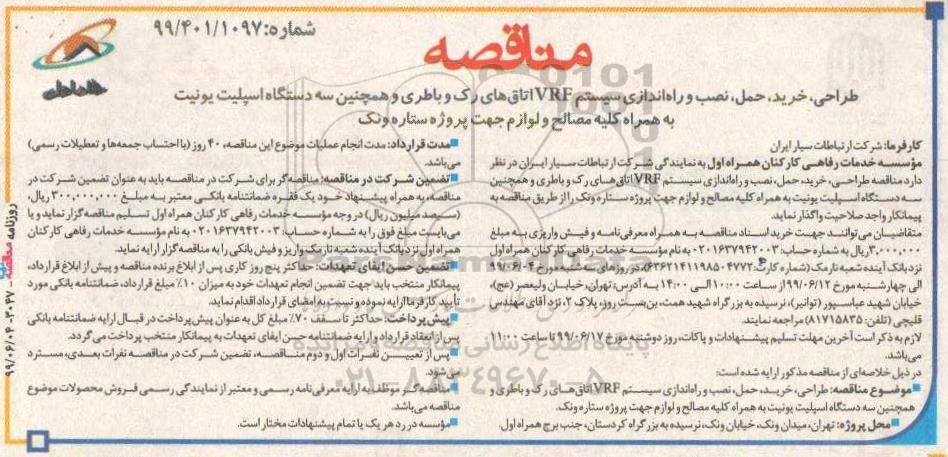 شماره: ۹۹/۴۰۱/۱۰۹۷
مناقصه
همراه اول
طراحی، خرید، حمل، نصب و راه‌اندازی سیستم VRF اتاق‌های رک و باطری و همچنین سه دستگاه اسپلیت یونیت
به همراه کلیه مصالح و لوازم جهت پروژه ستاره ونک
کارفرما: شرکت ارتباطات سیار ایران
مؤسسه خدمات رفاهی کارکنان همراه اول به نمایندگی شرکت ارتباطات سیار ایران در نظر
دارد مناقصه طراحی، خرید، حمل، نصب و راه‌اندازی سیستم VRF اتاق‌های رک و باطری و همچنین
سه دستگاه اسپلیت یونیت به همراه کلیه مصالح و لوازم جهت پروژه ستاره ونک را از طریق مناقصه به
پیمانکار واجد صلاحیت واگذار نماید.
متقاضیان می‌توانند جهت خرید اسناد مناقصه به همراه معرفی‌نامه و فیش واریزی به مبلغ
۳,۰۰۰,۰۰۰ ریال به شماره حساب: ۰۲۰۱۶۳۷۹۴۲۰۰۳ به نام مؤسسه خدمات رفاهی کارکنان همراه اول
نزد بانک آینده شعبه نارمک (شماره کارت: ۶۳۶۲۱۴۱۱۹۸۵۰۴۷۷۲)، در روزهای سه شنبه مورخ ۹۹/۰۶/۰۴
الی چهارشنبه مورخ ۹۹/۰۶/۱۲ از ساعت ۱۰:۰۰ الی ۱۴:۰۰ به آدرس: تهران، خیابان ولیعصر (عج)،
خیابان شهید عباسپور (توانیر)، نرسیده به بزرگراه شهید همت، بن‌بست روز، پلاک ۲، نزد آقای مهندس
قلیچی (تلفن: ۸۱۷۱۵۸۳۵) مراجعه نمایند.
لازم به ذکر است آخرین مهلت تسلیم پیشنهادات و پاکات، روز دوشنبه مورخ ۹۹/۰۶/۱۷ تا ساعت ۱۱:۰۰
می‌باشد.
در ذیل خلاصه‌ای از مناقصه مذکور ارایه شده است:
■موضوع مناقصه: طراحی، خرید، حمل، نصب و راه‌اندازی سیستم VRF اتاق‌های رک و باطری و
همچنین سه دستگاه اسپلیت یونیت به همراه کلیه مصالح و لوازم جهت پروژه ستاره ونک.
■محل پروژه: تهران، میدان ونک، خیابان ونک، نرسیده به بزرگراه کردستان، جنب برج همراه اول.
■مدت قرارداد: مدت انجام عملیات موضوع این مناقصه، ۴۰ روز (با احتساب جمعه‌ها و تعطیلات رسمی)
می‌باشد.
■تضمین شرکت در مناقصه: مناقصه‌گر برای شرکت در مناقصه باید به عنوان تضمین شرکت در
مناقصه، به همراه پیشنهاد خود یک فقره ضمانتنامه بانکی معتبر به مبلغ ۳۰۰,۰۰۰,۰۰۰ ریال،
(سیصد میلیون ریال) در وجه مؤسسه خدمات رفاهی کارکنان همراه اول تسلیم مناقصه‌گزار نماید و یا
می‌بایست مبلغ فوق را به شماره حساب: ۰۲۰۱۶۳۷۹۴۲۰۰۳ به نام مؤسسه خدمات رفاهی کارکنان
همراه اول نزد بانک آینده شعبه نارمک واریز و فیش بانکی را به مناقصه گزار ارایه نماید.
■تضمین حسن ایفای تعهدات: حداکثر پنج روز کاری پس از ابلاغ برنده مناقصه و پیش از ابلاغ قرارداد،
پیمانکار منتخب باید جهت تضمین انجام تعهدات خود به میزان ۱۰٪ مبلغ قرارداد، ضمانتنامه بانکی مورد
تأیید کارفرما ارایه نموده و نسبت به امضای قرارداد اقدام نماید.
■پیش پرداخت: حداکثر تا سقف ۷۰٪ مبلغ کل به عنوان پیش پرداخت در قبال ارایه ضمانتنامه بانکی
پس از انعقاد قرارداد و ارایه ضمانتنامه حسن ایفای تعهدات به پیمانکار منتخب پرداخت می‌گردد.
■پس از تعیین نفرات اول و دوم مناقصه، تضمین شرکت در مناقصه نفرات بعدی، مسترد
می‌شود.
■مناقصه‌گر موظف به ارایه معرفی‌نامه رسمی و معتبر از نمایندگی رسمی فروش محصولات موضوع
مناقصه می‌باشد.
■مؤسسه در رد هر یک یا تمام پیشنهادات مختار است.
روزنامه مناقصه
۹۹/۰۶/۰۴ - ۲۰۳۷
ParsNamadData
پایگاه اطلاع رسانی
۰۲۱-۸۸۳۴۹۶۷۰-۵